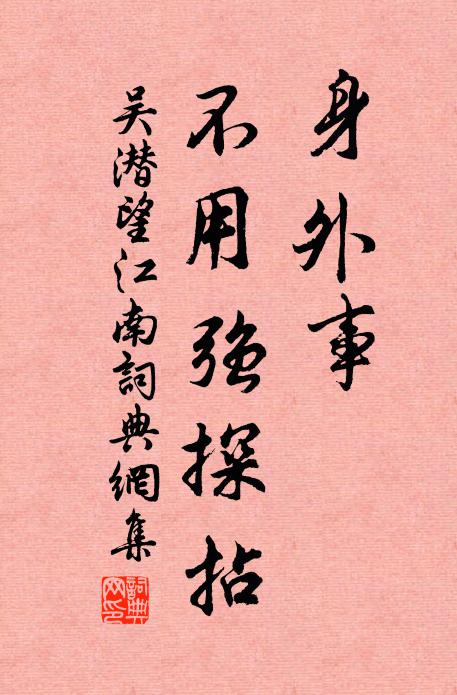 身外事
不用强探拈
吴潜望江南詞典網集
詞典網印